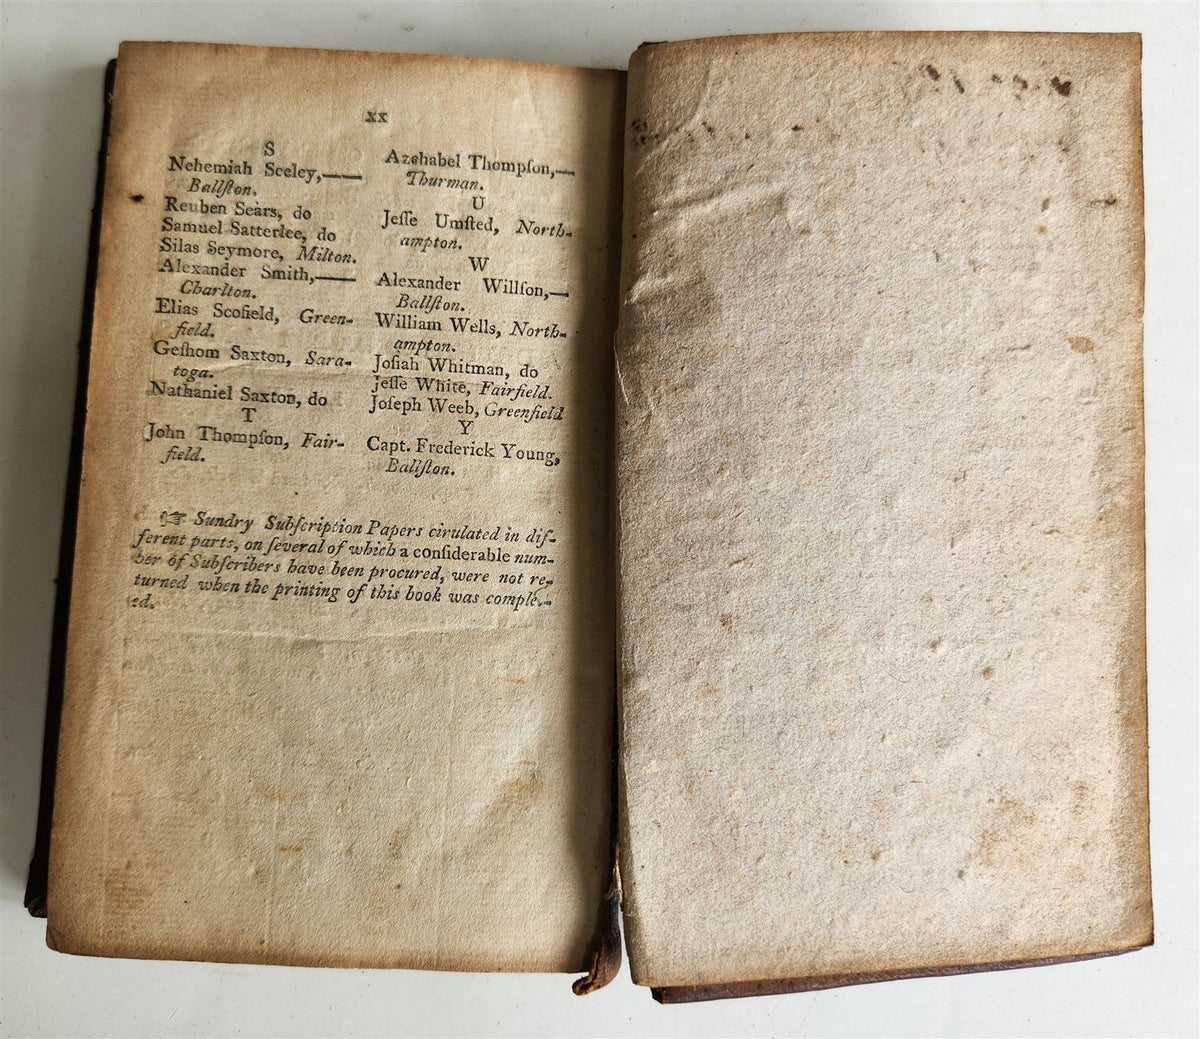 xx
S
Nehemiah Seeley,——
Ballſton.
Reuben Sears, do
Samuel Satterlee, do
Silas Seymore, Milton.
Alexander Smith,——
Charlton.
Elias Scofield, Green-
field.
Geſhom Saxton, Sara-
toga.
Nathaniel Saxton, do
T
John Thompſon, Fair-
field.
Azehabel Thompſon,—
Thurman.
U
Jeſſe Umſted, North-
ampton.
W
Alexander Willſon,—
Ballſton.
William Wells, North-
ampton.
Joſiah Whitman, do
Jeſſe White, Fairfield.
Joſeph Weeb, Greenfield
Y
Capt. Frederick Young,
Ballſton.
☞ Sundry Subſcription Papers cirulated in dif-
ferent parts, on ſeveral of which a conſiderable num-
ber of Subſcribers have been procured, were not re-
turned when the printing of this book was complet-
ed.